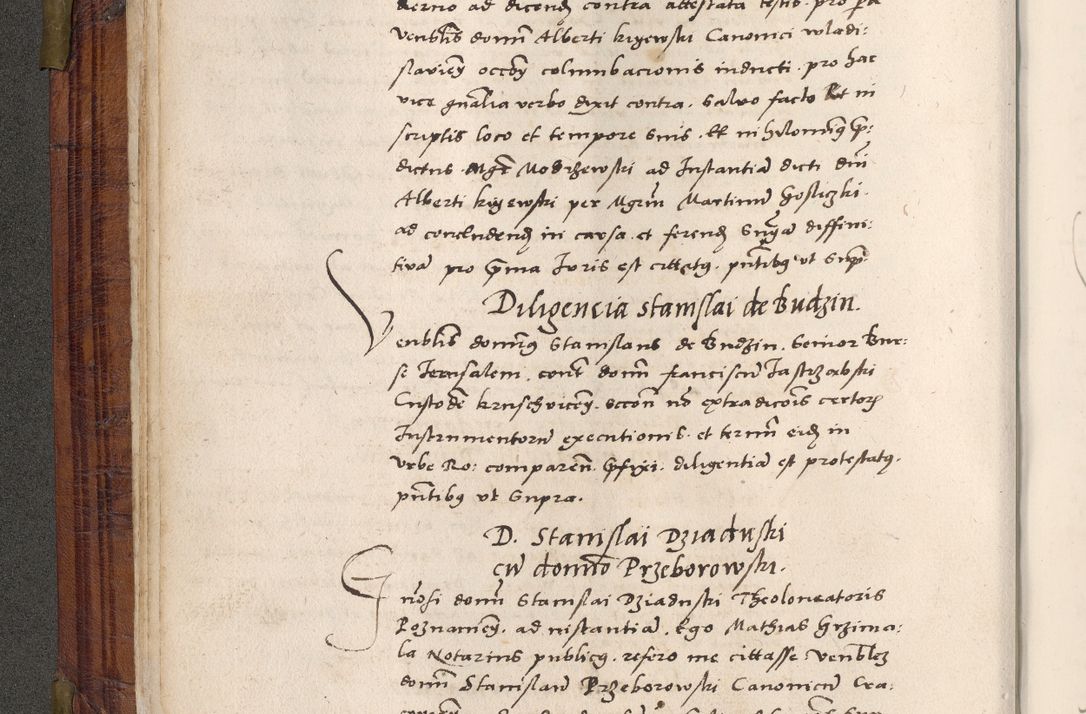 ad dicend contra attestata testis pro
venblis domi Alberti kryewski Canonici wladi:
slavien occoy columbacionis inducti. pro hac
vice gnalia verbo dixit contra. Salvo facto Et in
scriptis loco et tempore suis. Et nihilominq p:
dictus Mgr Modrzewski ad Instantia dicti dni
Alberti kryewski per Mgrm Martinu Gosliczki.
ad concludend in causa et ferend Snia diffini:
tiva pro pma Iuris est cittatq. pntibq ut Sup
Diligencia Stanislai de Budzin.
Venblis dominq Stanislaus de Budzin. Senior Bur:
se Ierusalem. cont domi franciscu Iastrzabski
Custode kruschvicen. occon no extradicois certor
Instrumentoru executionis. et termi eid in
Urbe Ro: comparen pfixi. diligentia est protestatq.
pntibq ut Supra.
D. Stanislai Dziaduski
cu domino Przeborowski.
Gnosi domi Stanislai Dziaduski Theoloneatoris
Poznanien. ad instantia. Ego Mathias Grzima:
la Notarius publicq. refero me cittasse. Venblez
domi Stanislau Przeborowski Canonicu Cra: